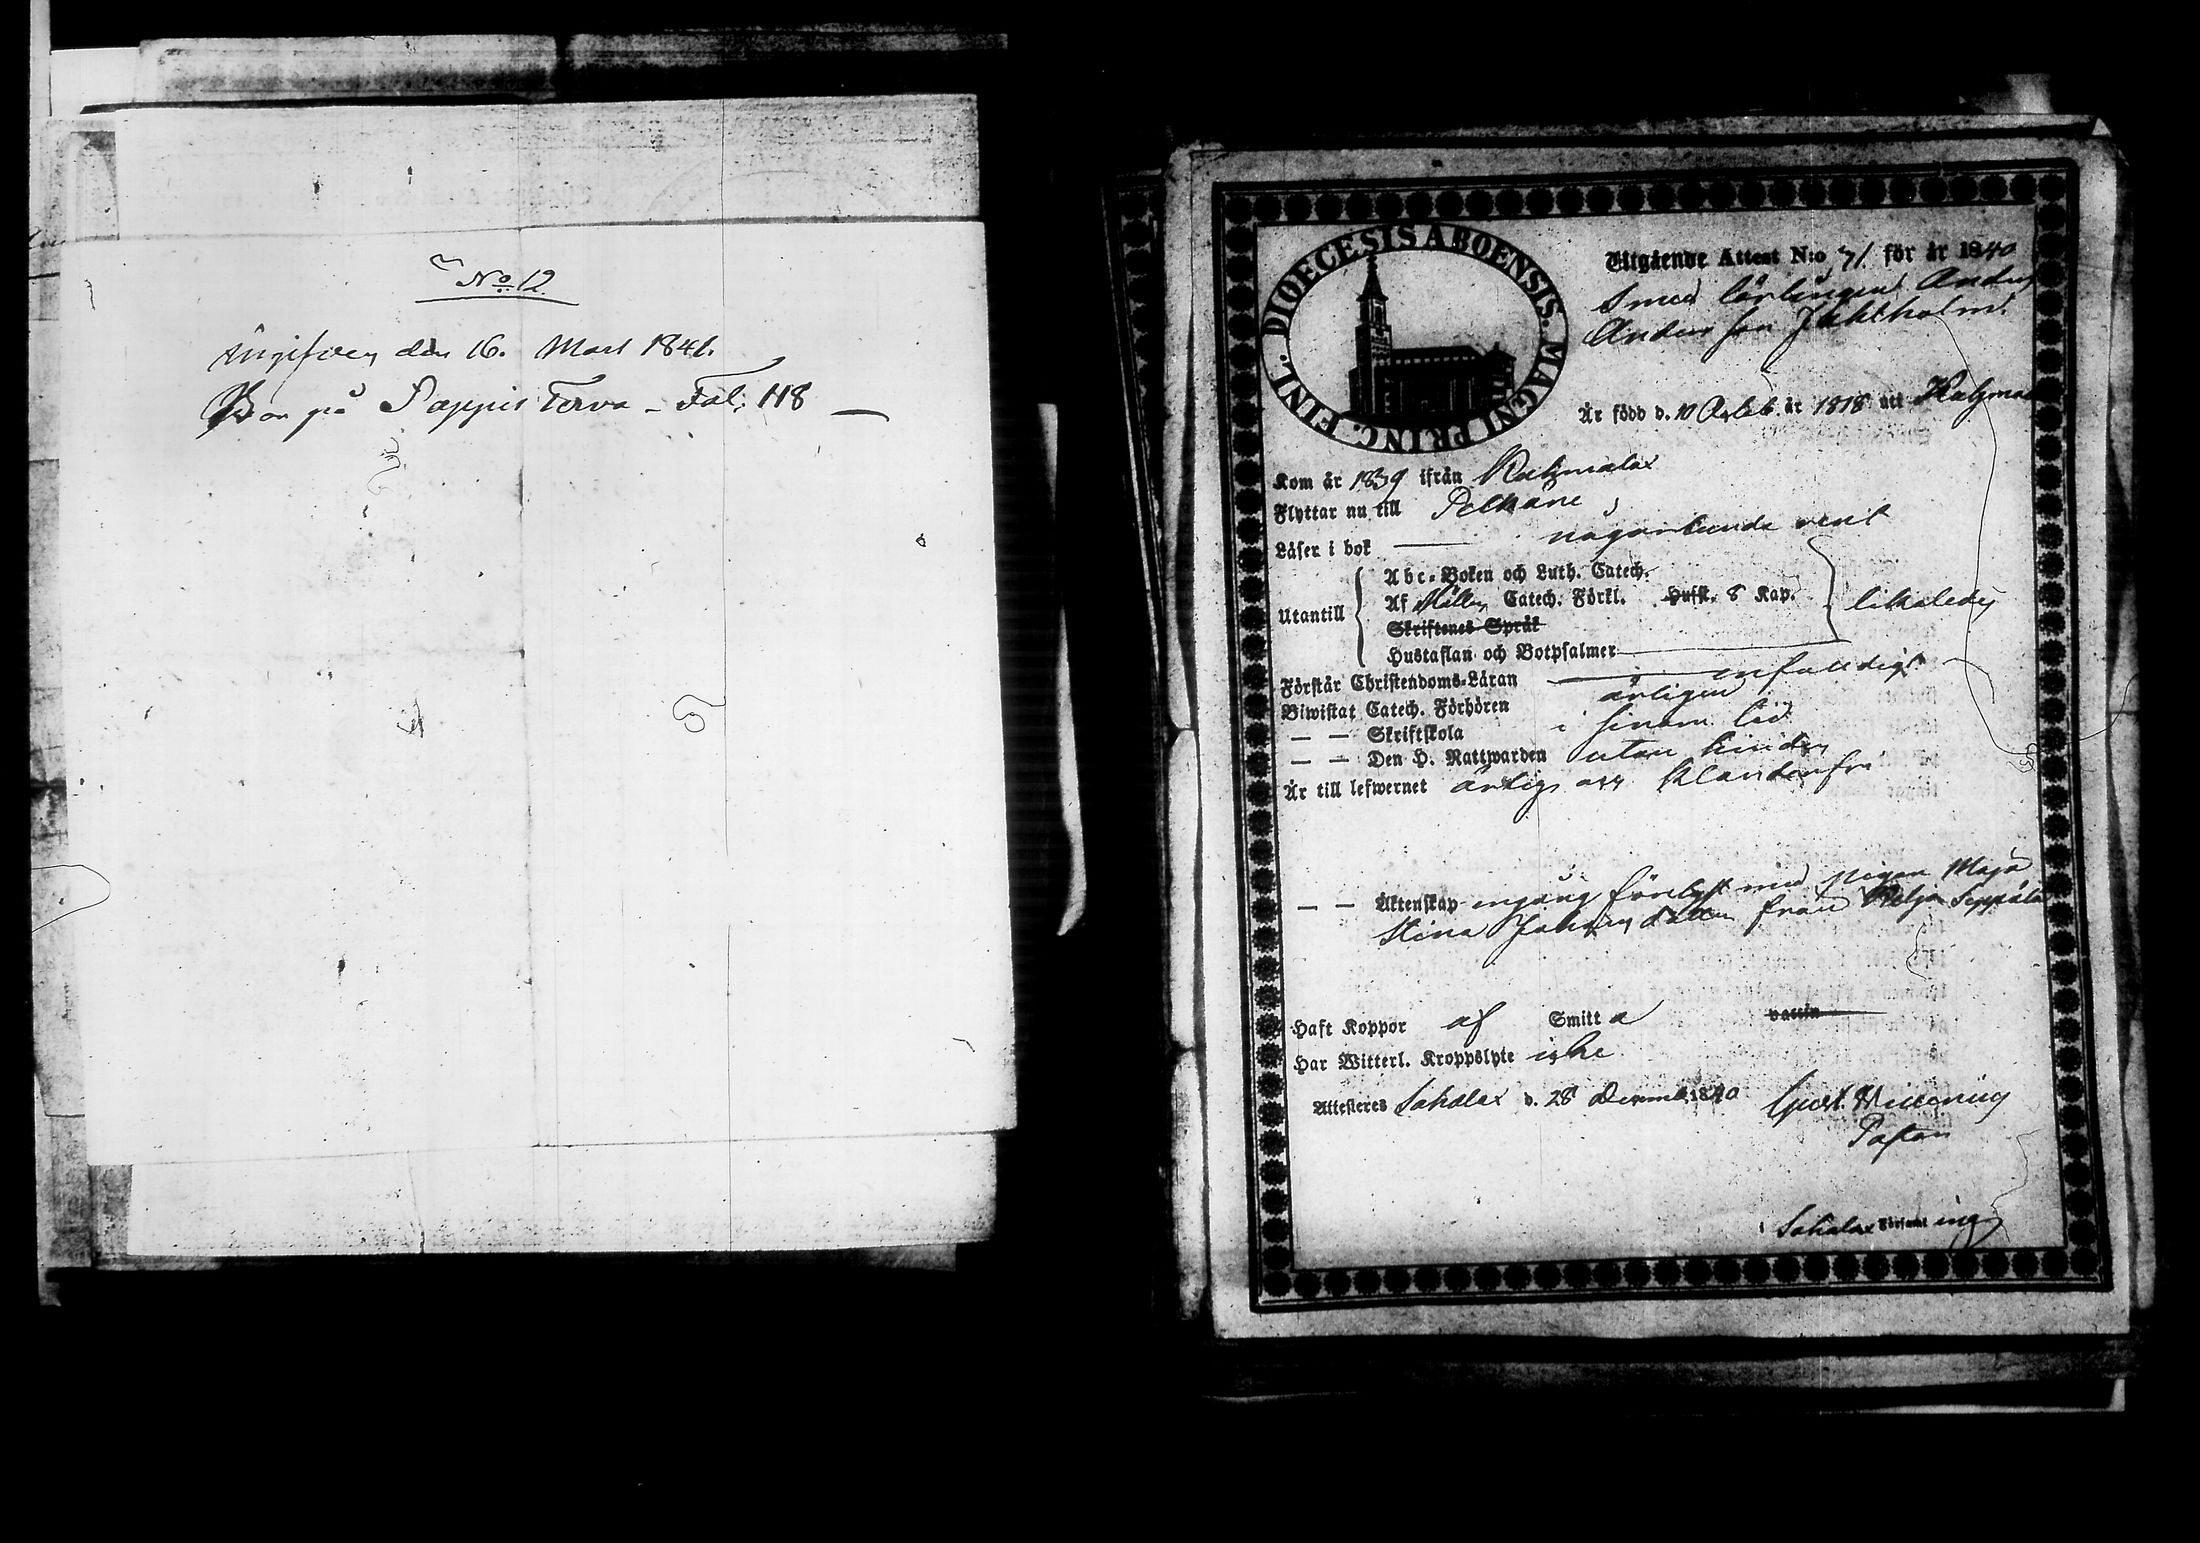 No 12.
Ingifven den 16. Mart 1841.
Bor på Pappis Torva - Fol. 118
DIOECESIS ABOENSIS. MAGNI PRINC. FINL.
Utgående Attest N:o 71. för år 1840
Smed lärlingen Anders
Andersson
Är född d. 10 år 1818 att
Kom år 1839 ifrån Kuhmalax
Flyttar nu till Pelkäne,
Läser i bok någorlunda rent
Abc-Boken och Luth. Catech.
Utantill Af Catech. Förkl. Hufst. 8 Kap. likaledes
Skriftenes Språk
Hustaflan och Botpsalmer
Förstår Christendoms-Läran enfaldigt
Biwistat Catech. Förhören årligen
— — Skriftskola i sinom tid
— — Den H. Nattwarden utan hinder
Är till lefwernet ärlig och klanderfri
— — Äktenskap engång förlyst med pigan Maja
Stina Johansdotter från Seppälä
Haft Koppor af Smitta vaccin
Har Witterl. Kroppslyte icke
Attesteras Sahalax d. 28 Decemb. 1840
Pastor
i Sahalax Församling